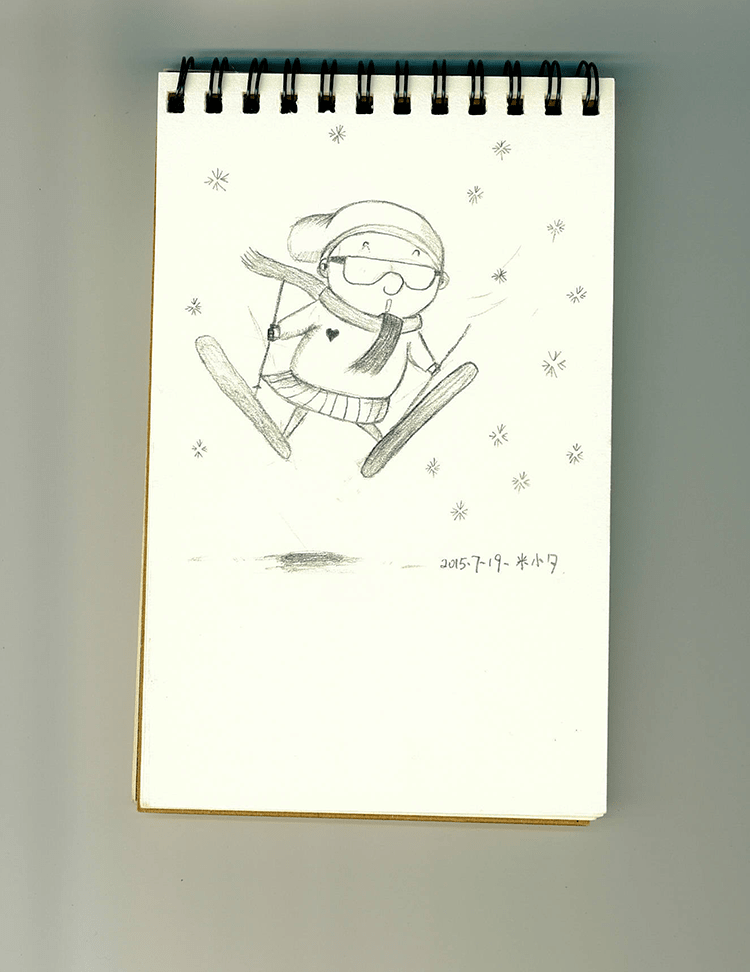 2015.7-19- 米小夕